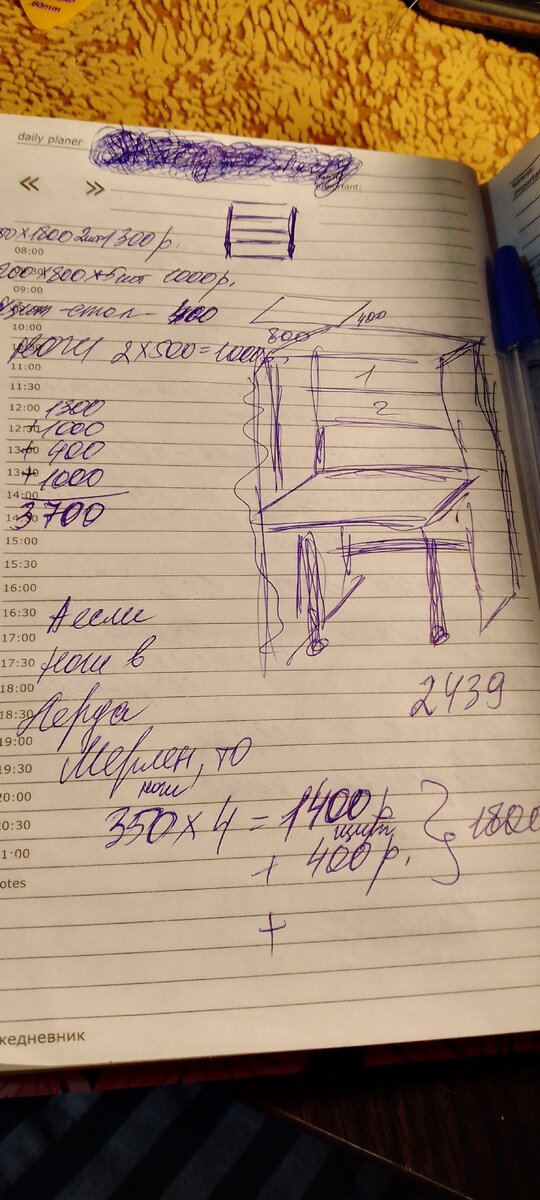 60mm
daily planer
important:
« »
×1800 2шт 1300 р.
08:00
200×800×5шт 1000 р.
09:00
щит-стол - 400
10:00
400
800
ноги 2×500=1000
11:00
1
11:30
2
12:00 1300
+1000
+ 400
+1000
14:00
3700
15:00
15:30
16:00
16:30 А если
17:00
17:30 ноги в
18:00
2439
18:30 Леруа
19:00
19:30 Мерлен, то
20:00 ноги
350×4 = 1400 р
20:30 щит } 1800
+ 400 р.
otes
+
жедневник